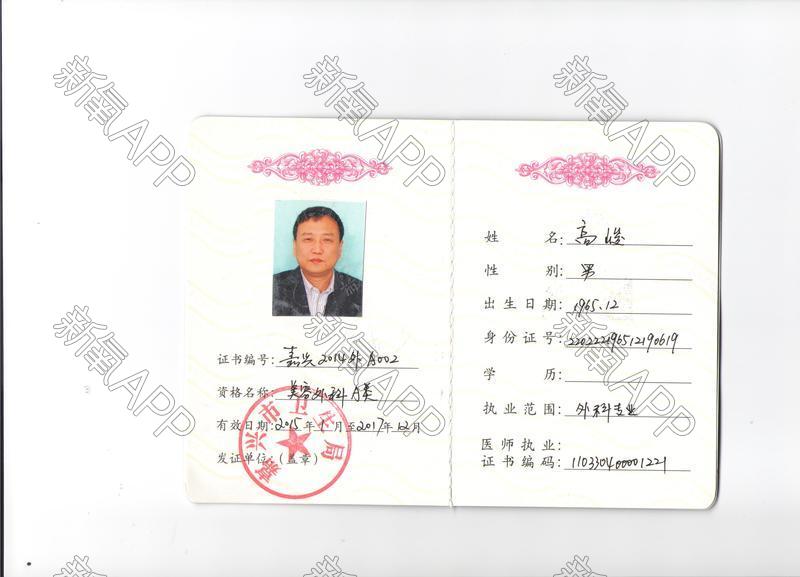 新氧APP
新氧APP
证书编号：嘉兴2014外A002
资格名称：美容外科A类
有效日期：2015年1月至2017年12月
发证单位：(盖章)
嘉兴市卫生局
姓名：高峻
性别：男
出生日期：1965.12
身份证号：220222196512190619
学历：
执业范围：外科专业
医师执业：
证书编码：110330400001221
新氧APP
新氧APP
新氧APP
新氧APP
新氧APP
新氧APP